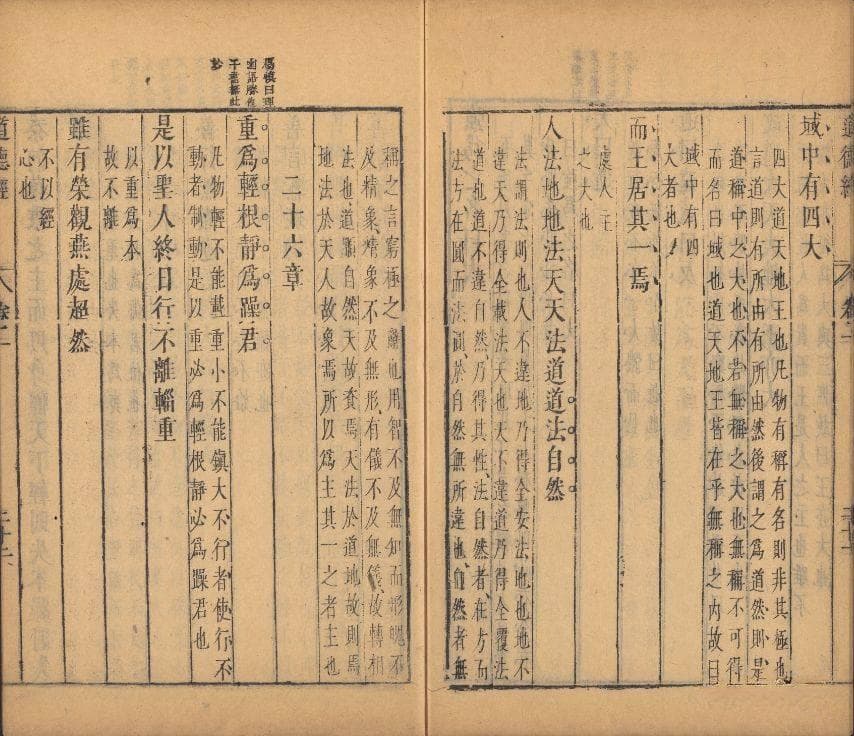 道德經
域中有四大
四大道天地王也凡物有稱有名則非其極也
言道則有所由有所由然後謂之爲道然則是
道稱中之大也不若無稱之大也無稱不可得
而名曰域也道天地王皆在乎無稱之內故曰
域中有四
大者也
而王居其一焉
處人主
之大也
人法地地法天天法道道法自然
法謂法則也人不違地乃得全安法地也地不
違天乃得全載法天也天不違道乃得全覆法
道也道不違自然乃得其性法自然者在方而
法方在圓而法圓於自然無所違也自然者無
稱之言窮極之辭也用智不及無知而形魄不
及精象精象不及無形有儀不及無儀故轉相
法也道順自然天故資焉天法於道地故則焉
地法於天人故象焉所以爲主其一之者主也
二十六章
楊慎曰理
重爲輕根靜爲躁君
凡物輕不能載重小不能鎮大不行者使行不
動者制動是以重必爲輕根靜必爲躁君也
是以聖人終日行不離輜重
以重爲本
故不離
雖有榮觀燕處超然
不以經
心也
道德經 卷二